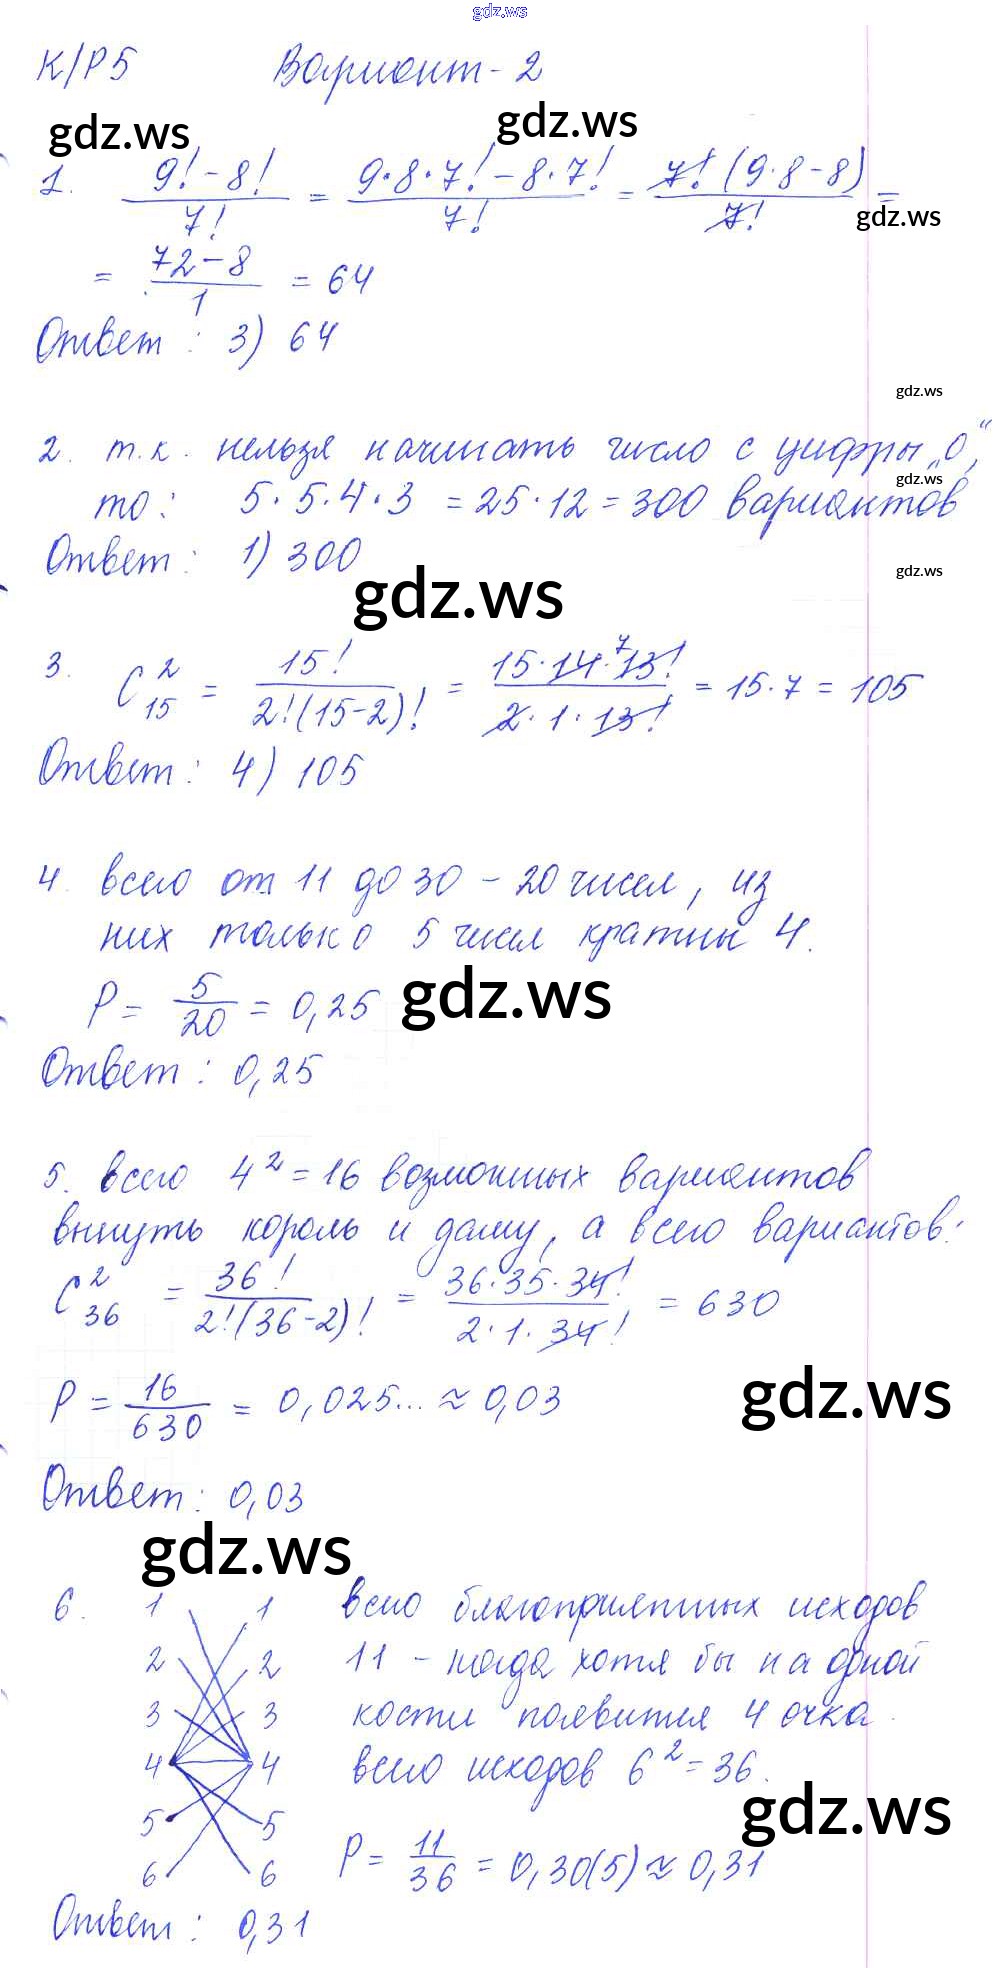 gdz.ws
К/Р 5 Вариант-2
gdz.ws gdz.ws
1. (9! - 8!)/7! = (9·8·7! - 8·7!)/7! = (7!(9·8-8))/7! =
gdz.ws
= (72-8)/1 = 64
Ответ: 3) 64
gdz.ws
2. т.к. нельзя начинать число с цифры „0“,
gdz.ws
то: 5·5·4·3 = 25·12 = 300 вариантов
Ответ: 1) 300
gdz.ws
gdz.ws
3. C₁₅² = 15!/(2!(15-2)!) = (15·14·⁷13!)/(2·1·13!) = 15·7 = 105
Ответ: 4) 105
4. всего от 11 до 30 - 20 чисел, из
них только 5 чисел кратны 4.
gdz.ws
P = 5/20 = 0,25
Ответ: 0,25
5. всего 4² = 16 возможных вариантов
вынуть король и даму, а всего вариантов:
C₃₆² = 36!/(2!(36-2)!) = (36·35·34!)/(2·1·34!) = 630
gdz.ws
P = 16/630 = 0,025... ≈ 0,03
Ответ: 0,03
gdz.ws
6. 1 1 всего благоприятных исходов
2 2 11 - когда хотя бы на одной
3 3 кости появится 4 очка.
4 4 всего исходов 6² = 36.
gdz.ws
5 5
6 6 P = 11/36 = 0,30(5) ≈ 0,31
Ответ: 0,31